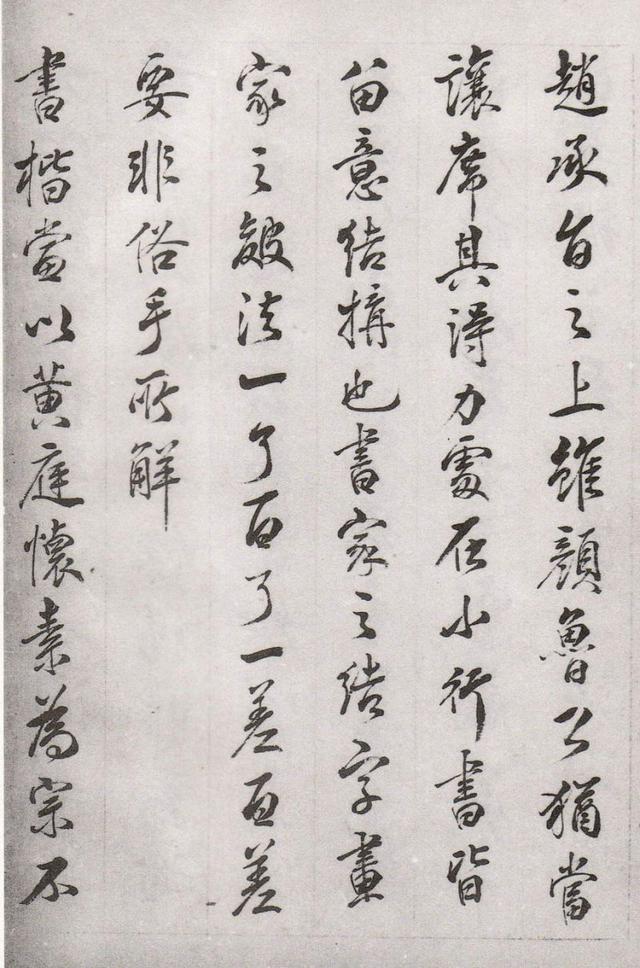 趙承旨之上雖顏魯公猶當
讓席其得力處在小行書皆
留意結搆也書家之結字畫
家之皴法一了百了一差百差
要非俗手所解
書楷當以黃庭懷素為宗不